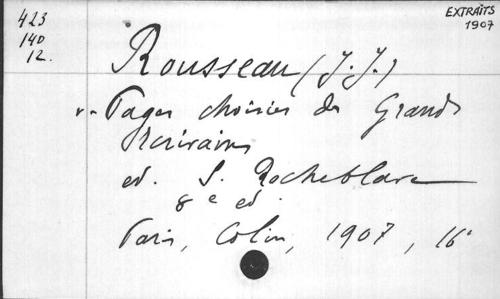 423
140
12.
EXTRAITS
1907
Rousseau (J. J.)
v. Pages choisies des Grands
Ecrivains
ed. S. Rocheblave
8e ed.
Paris, Colin, 1907, 16°